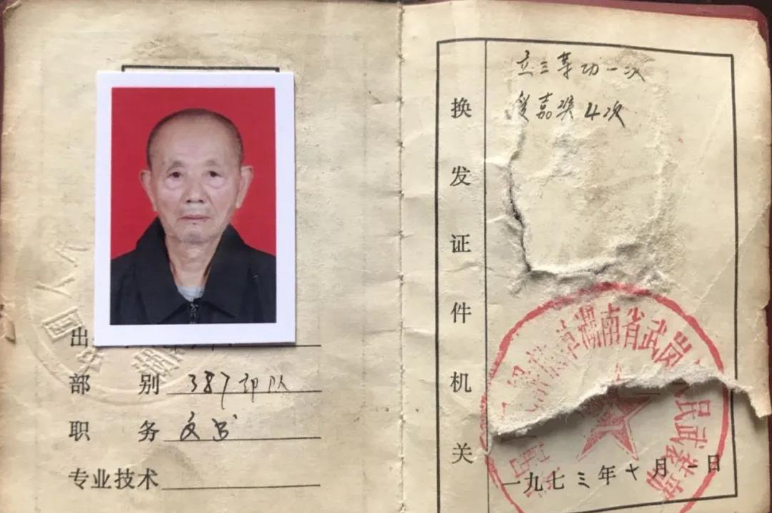 部 别 387部队
职 务 文书
专业技术
换发证件机关
立三等功一次
受嘉奖4次
湖南省武岗
民武装部
一九七三年十月一日